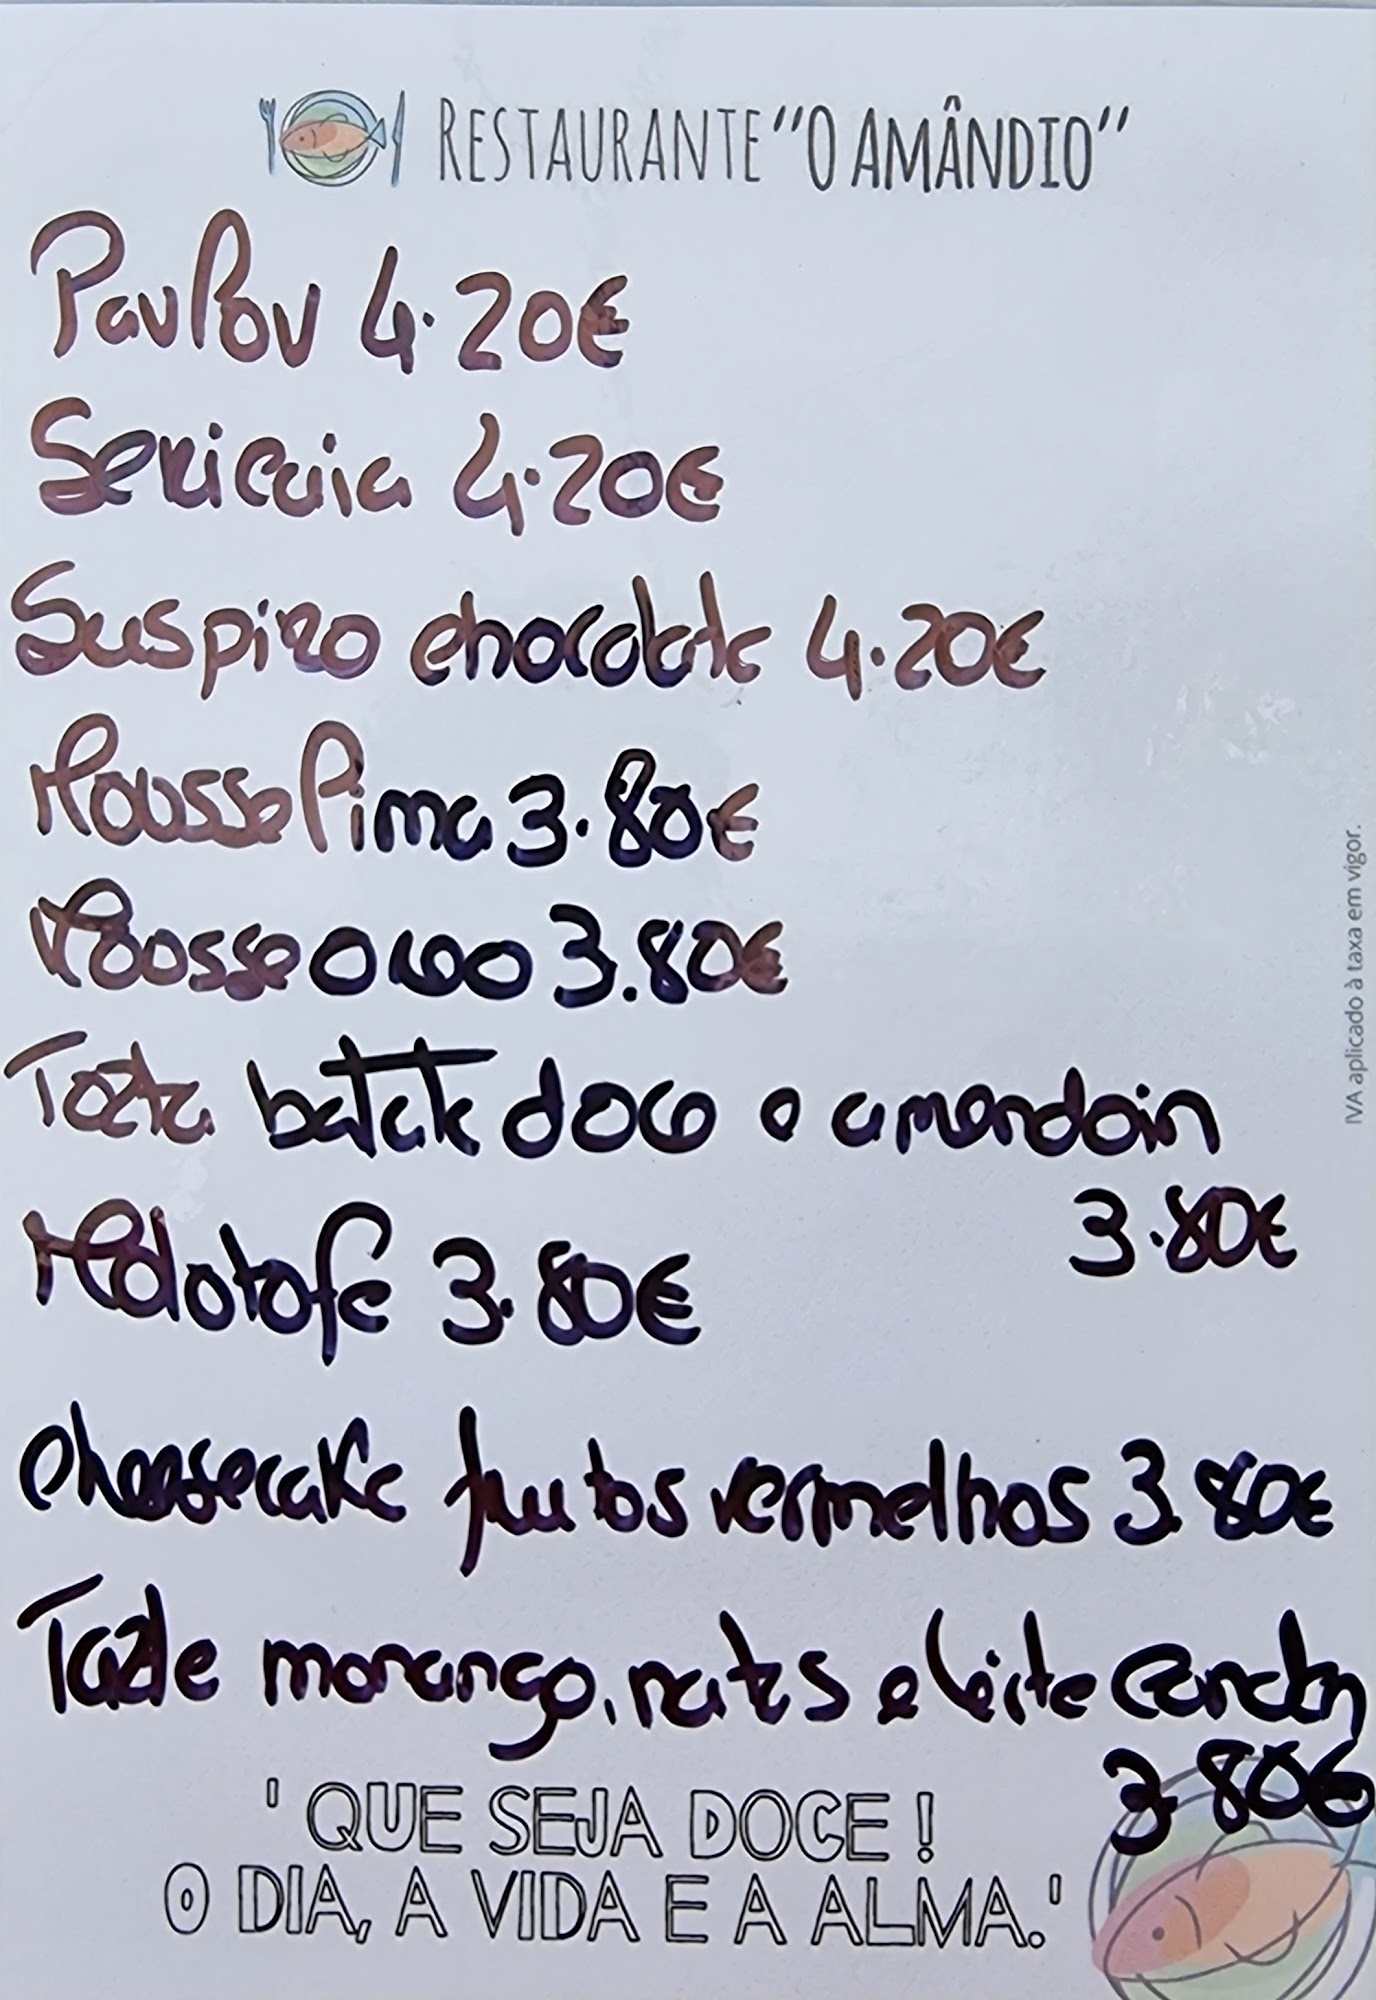 RESTAURANTE "O AMÂNDIO"
Pavlov 4.20€
Sericaia 4.20€
Suspiro chocolate 4.20€
Mousse lima 3.80€
Mousse oreo 3.80€
Torta batata doce e amendoin
3.80€
Molotofe 3.80€
cheesecake frutos vermelhos 3.80€
Tarde morango, natas e leite conden
3.80€
' QUE SEJA DOCE !
O DIA, A VIDA E A ALMA.'
IVA aplicado à taxa em vigor.